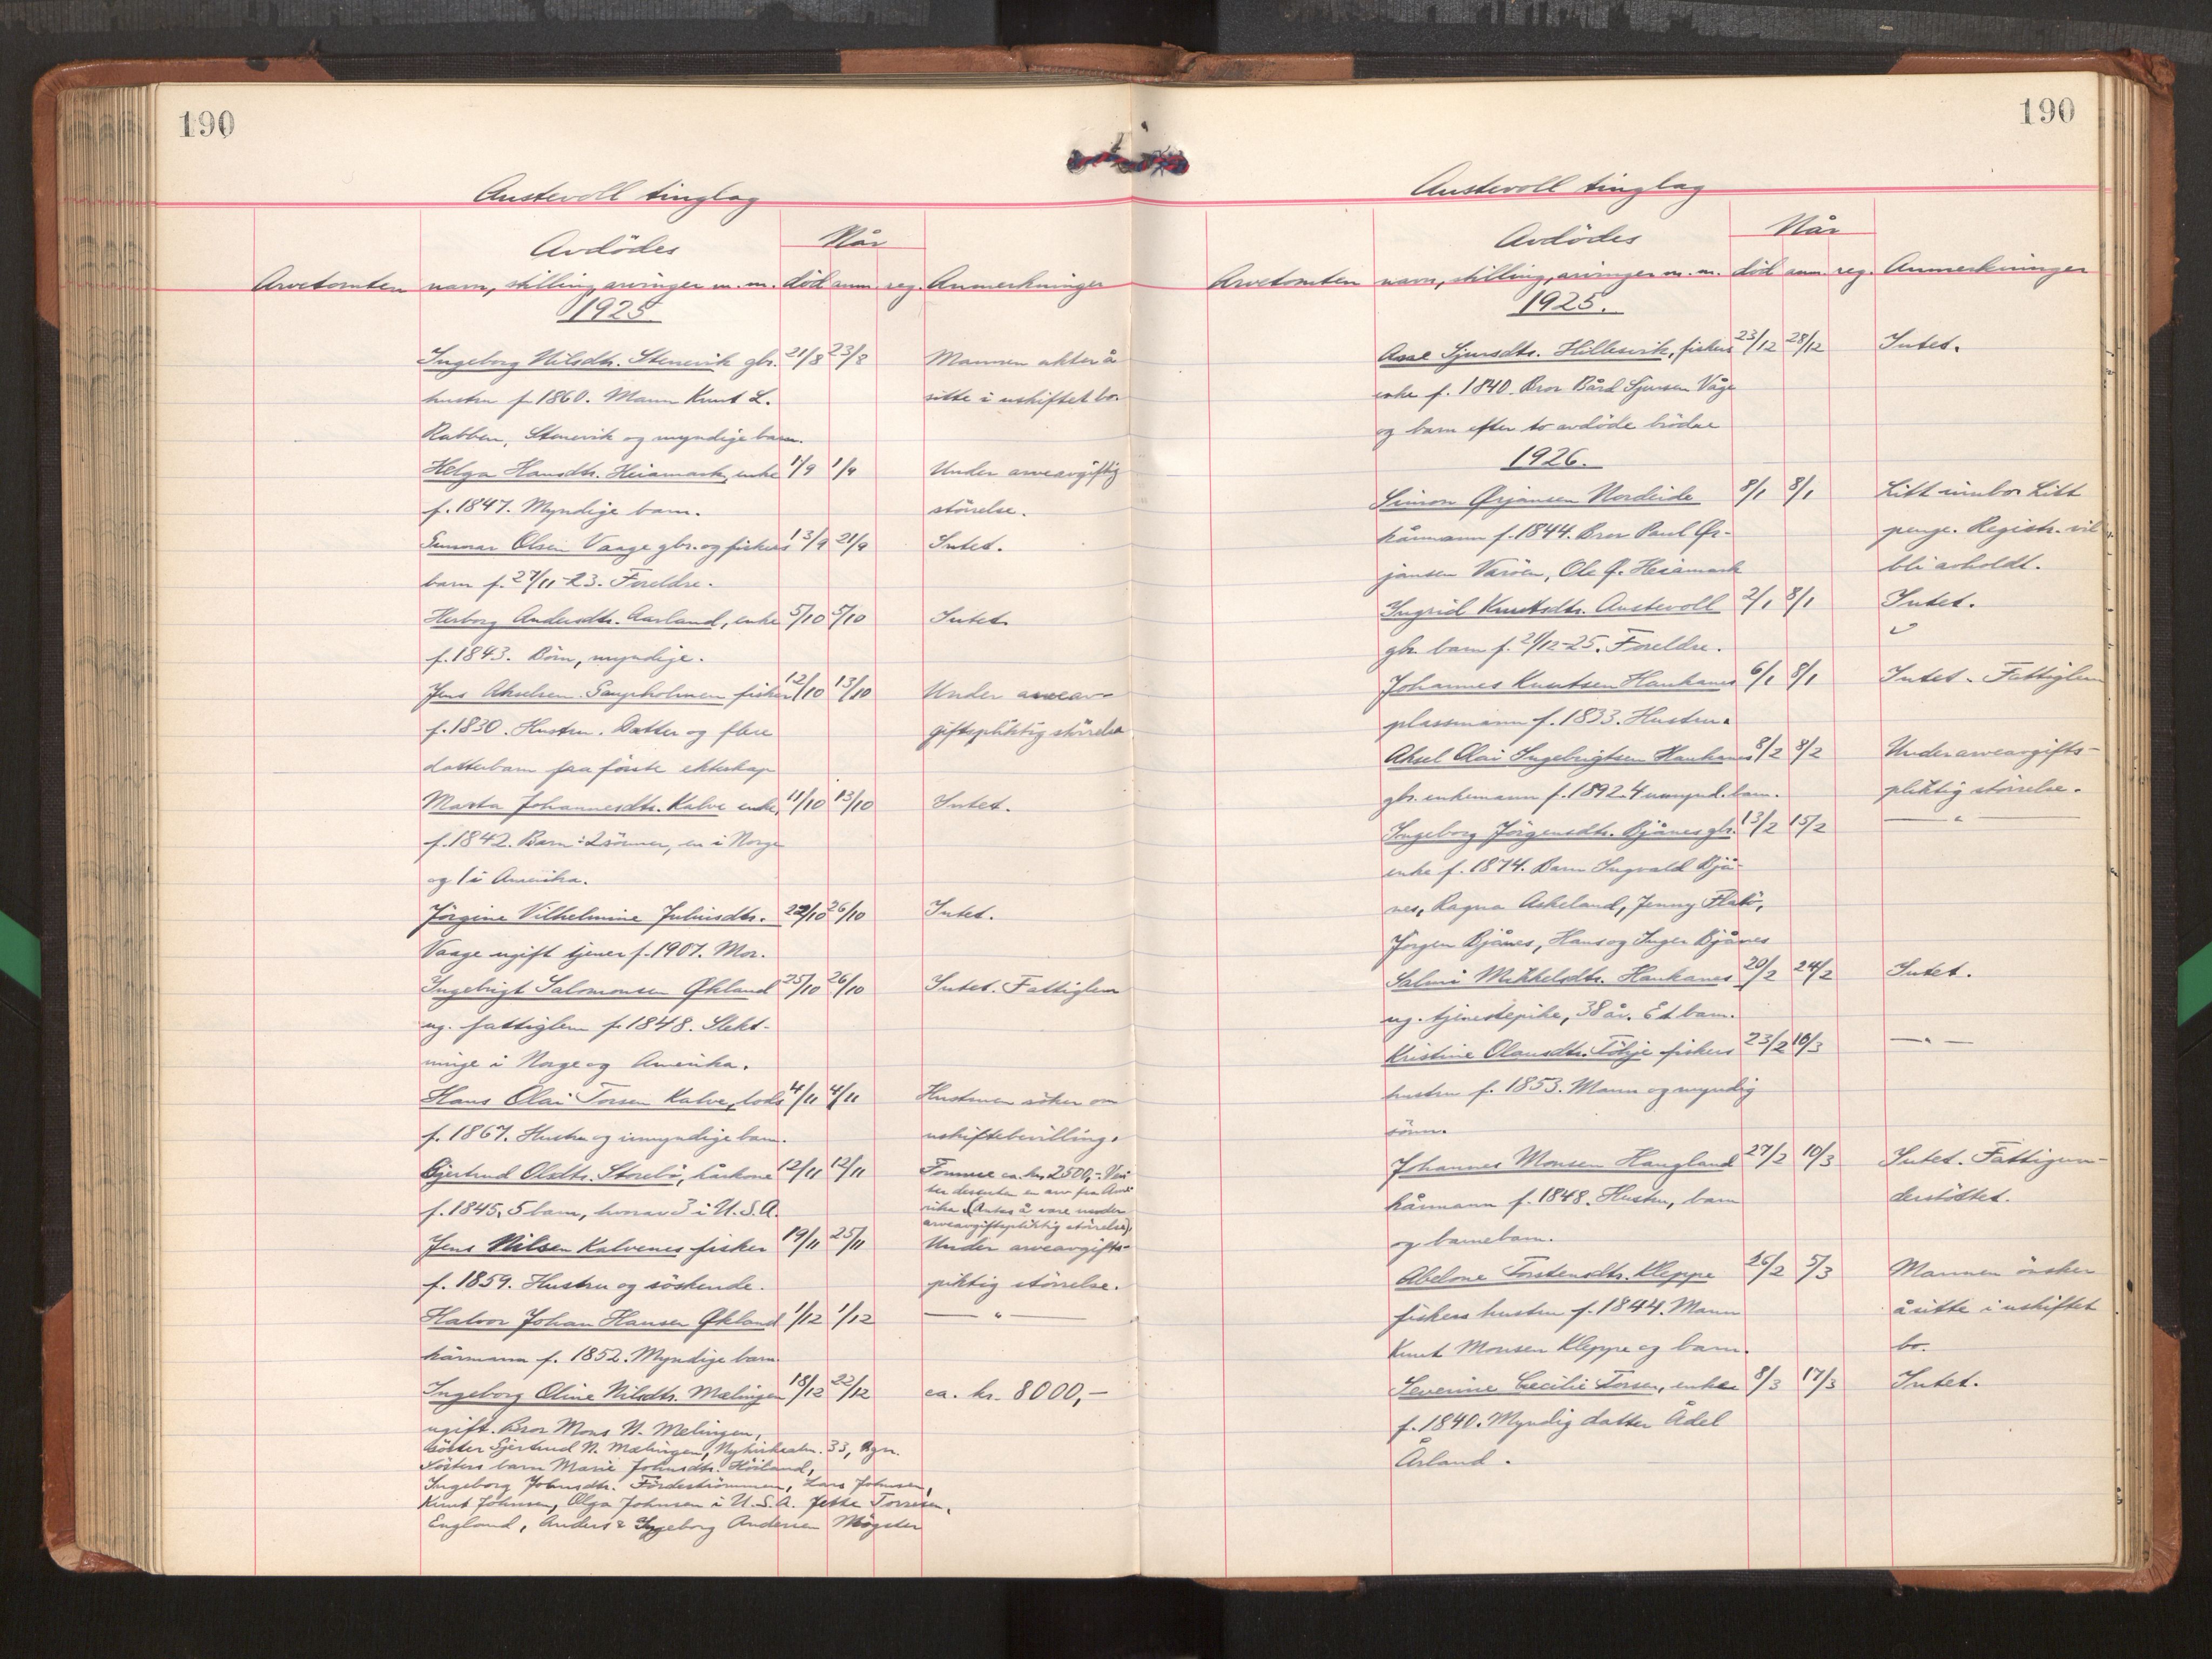 190
Austevoll tinglag
Avdödes
Når
Arvetomten navn, stilling, arvinger m. m. död anm reg. Anmerkninger
1925
Ingeborg Nilsdtr. Stenevik gbr. 21/8 23/8 Mannen akter å
hustru f. 1860. Mann Knut L. sitte i uskiftet bo.
Rabben, Stenevik og myndige barn.
Helga Hansdtr. Heiamark, enke 1/9 1/9 Under arveavgiftig
f. 1847. Myndige barn. störrelse.
Gunnar Olsen Vaage gbr. og fiskers 13/9 21/9 Intet.
barn f. 27/11-23. Foreldre.
Herborg Andersdtr. Aarland, enke 5/10 5/10 Intet.
f. 1843. Börn, myndige.
Jens Akselsen fisker 12/10 13/10 Under arveav-
f. 1830. Hustru. Datter og flere giftspliktig störrelse
datterbarn fra förste ekteskap
Marta Johannesdtr. Kalve enke, 11/10 13/10 Intet.
f. 1842. Barn: 2 sönner, en i Norge
og 1 i Amerika.
Jörgine Vilhelmine Juliusdtr. 22/10 26/10 Intet.
Vaage ugift tjener f. 1907. Mor.
Ingebrigt Salomonsen Økland 25/10 26/10 Intet. Fattiglem
ug. fattiglem f. 1848. Slekt-
ninge i Norge og Amerika.
Hans Olai Torsen Kalve, lods 4/11 4/11 Hustruen söker om
f. 1867. Hustru og umyndige barn. uskiftebevilling.
Gjertrud Olsdtr. Storebö, kårkone 12/11 12/11 Formue ca. kr. 2500,- Ven
ter desuten en arv fra Ame
f. 1845, 5 barn, hvorav 3 i U.S.A. rika (Antas å være under
arveavgiftspliktig störrelse).
Jens Nilsen Kalvenes fisker 19/11 25/11 Under arveavgifts-
f. 1859. Hustru og söskende. pliktig störrelse.
Halvor Johan Hansen Økland 1/12 1/12 — " —
kårmann f. 1852. Myndige barn.
Ingeborg Oline Nilsdtr. Mælingen 18/12 22/12 ca. kr. 8000,-
ugift. Bror Mons N. Melingen,
söster Gjertrud N. Mælingen, Nykirkealm. 33, Bgn.
Sösters barn Marie Johnsdtr. Höiland,
Ingeborg Johnsdtr. Fördeströmmen, Lars Johnsen,
Knut Johnsen, Olga Johnsen i U.S.A. Jette Torresen,
England, Anders & Ingeborg Andersen Mögster
190
Austevoll tinglag
Avdödes
Når
Arvetomten navn, stilling, arvinger m. m. död anm. reg. Anmerkninger
1925.
Aase Sjursdtr. Hillesvik, fiskers 23/12 28/12 Intet.
enke f. 1840. Bror Bård Sjursen Våge
og barn efter to avdöde brödre
1926.
Simon Ørjansen Nordeide 8/1 8/1 Litt innbo. Litt
kårmann f. 1844. Bror Paul Ør- penge. Registr. vil
jansen Varöen, Ole Ø. Heiamark bli avholdt.
Ingrid Knutsdtr. Austevoll 2/1 8/1 Intet.
gbr. barn f. 21/12-25. Foreldre.
Johannes Knutsen Haukanes 6/1 8/1 Intet. Fattiglem
plassmann f. 1833. Hustru.
Aksel Olai Ingebrigtsen Haukanes 8/2 8/2 Under arveavgifts-
gbr. enkemann f. 1892. 4 umynd. barn. pliktig störrelse.
Ingeborg Jörgensdtr. Bjånes gbr. 13/2 15/2 — " —
enke f. 1874. Barn Ingvald Bjå-
nes, Ragna Askeland, Jenny Flatö,
Jörgen Bjånes, Hans og Inger Bjånes
Salmi Mikkelsdtr. Haukanes 20/2 24/2 Intet.
ug. tjenestepike, 38 år. Et barn.
Kristine Olausdtr. Tökje fiskers 23/2 10/3 — " —
hustru f. 1853. Mann og myndig
sönn.
Johannes Monsen Haugland 27/2 10/3 Intet. Fattigun-
kårmann f. 1848. Hustru, barn derstöttet.
og barnebarn.
Abelone Torstensdtr. Kleppe 26/2 5/3 Mannen önsker
fiskers hustru f. 1844. Mann å sitte i uskiftet
Knut Monsen Kleppe og barn. bo.
Severine Cecilie Torsen, enke 8/3 17/3 Intet.
f. 1840. Myndig datter Ådel
Årland.